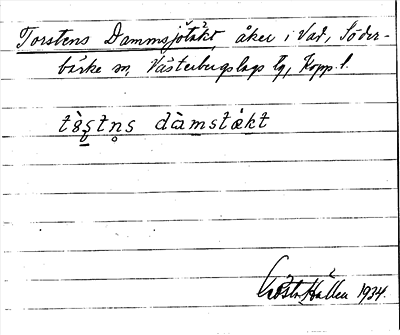 Torstens Dammsjötäkt, åker i Vad, Söder-
bärke sn, Västerbergslags tg, Kopp. l.
tòs̥tn̥s dàmstækt
Gösta Hallen 1934.